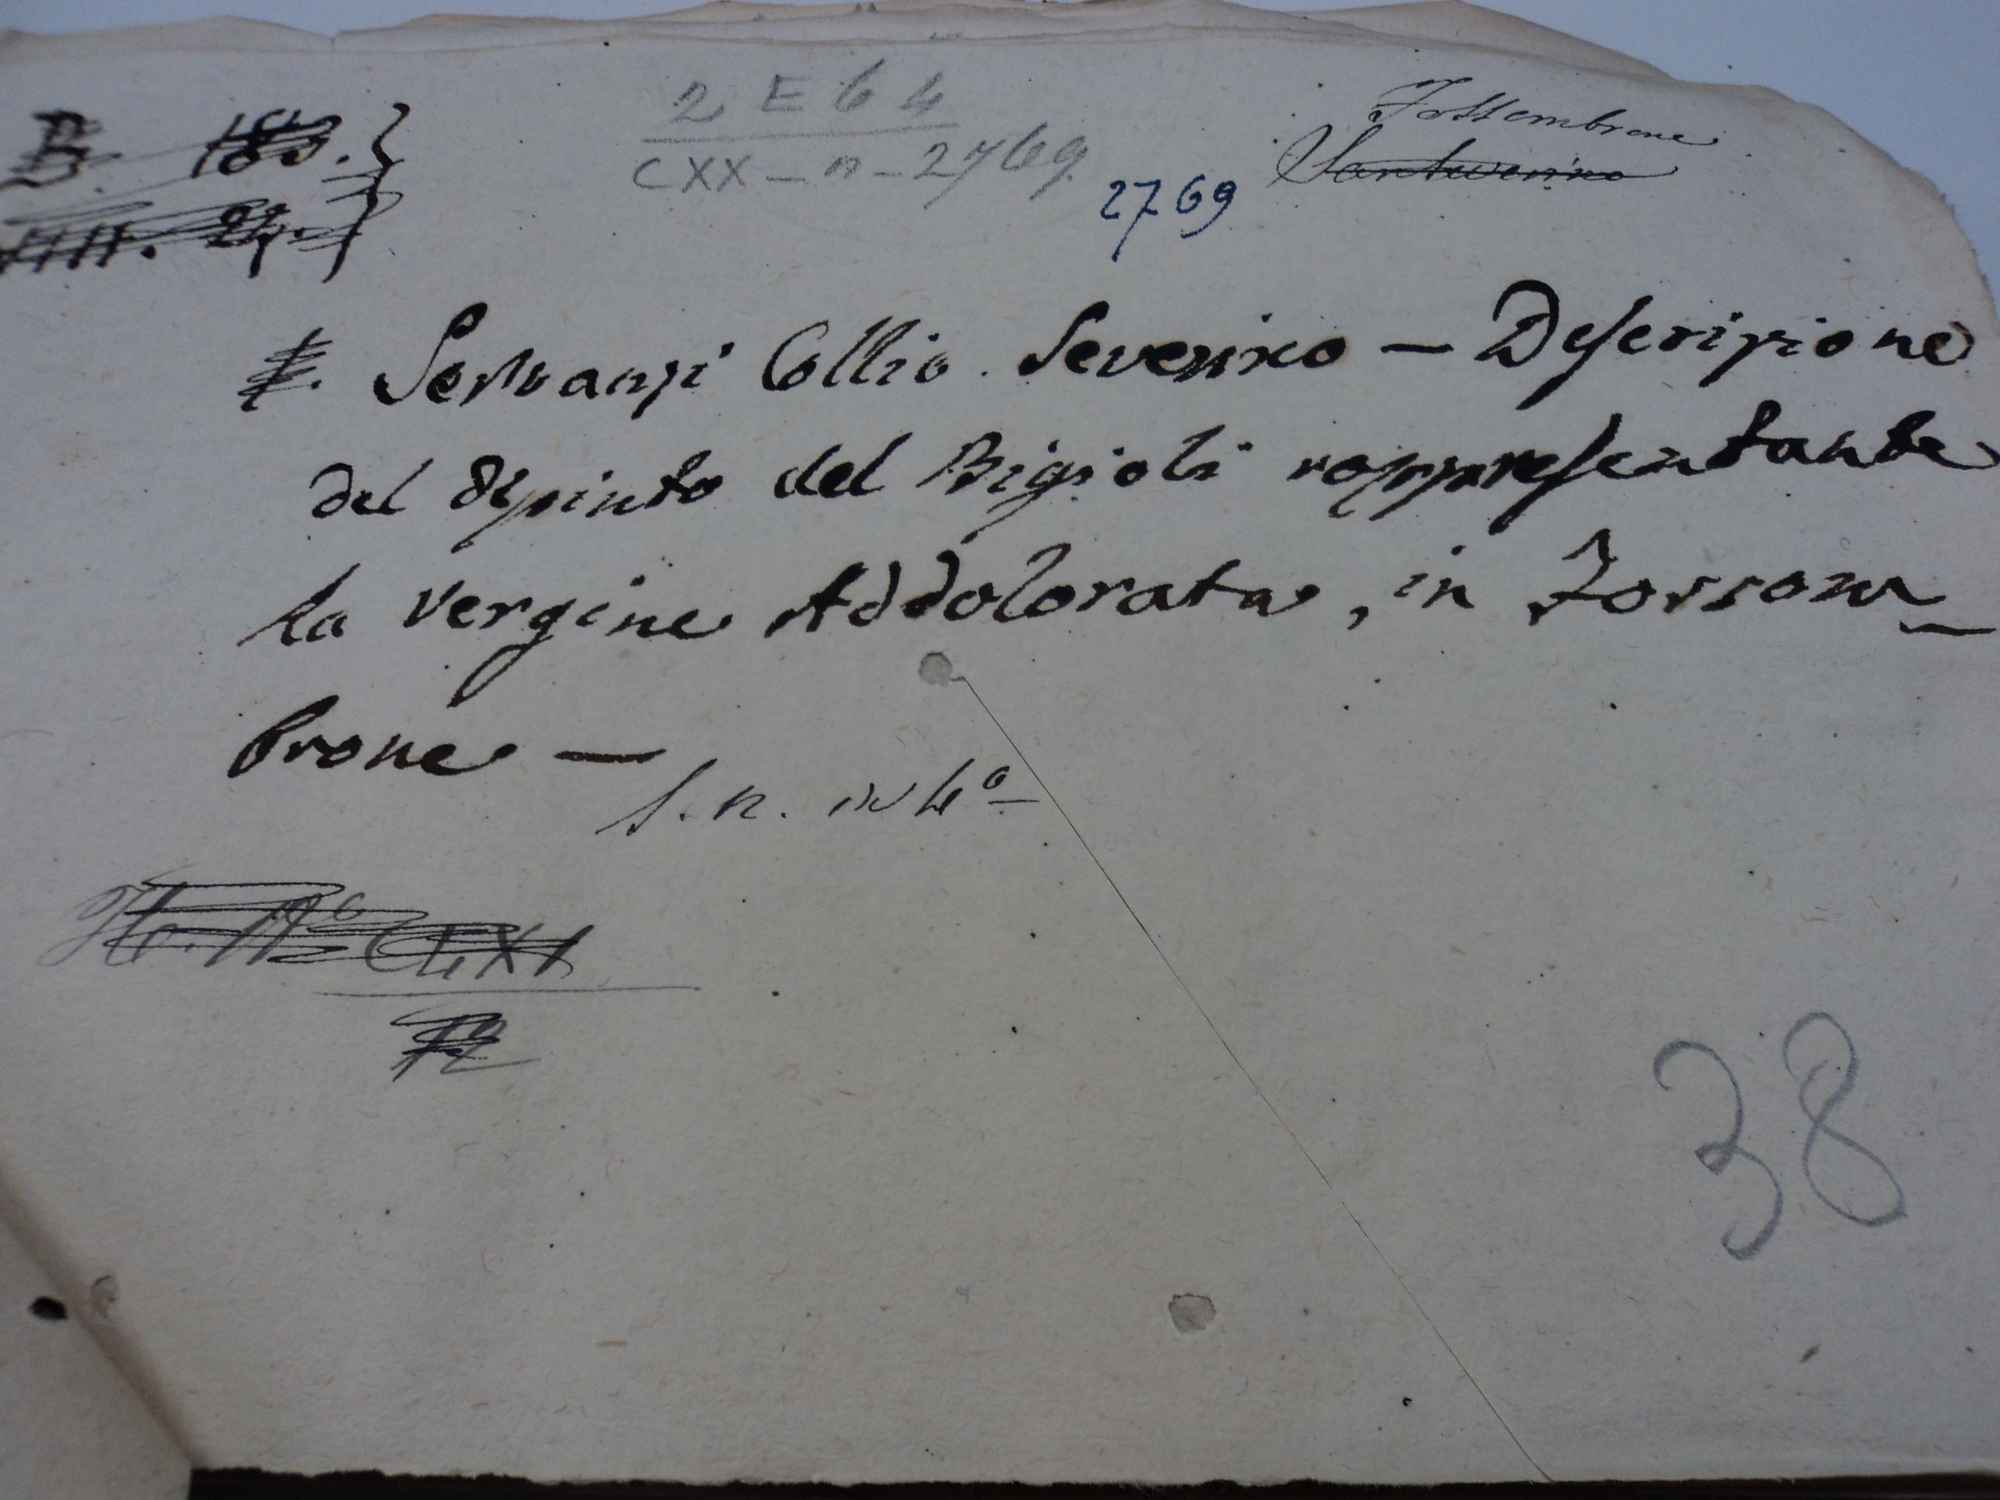 2 E 64
CXX - n - 2769
2769
Fossembrone
Sanseverino
Servanzi Collio Severino — Descrizione
del dipinto del Bigioli rappresentante
la Vergine Addolorata, in Fossom-
brone —
s. n. in 4º
38